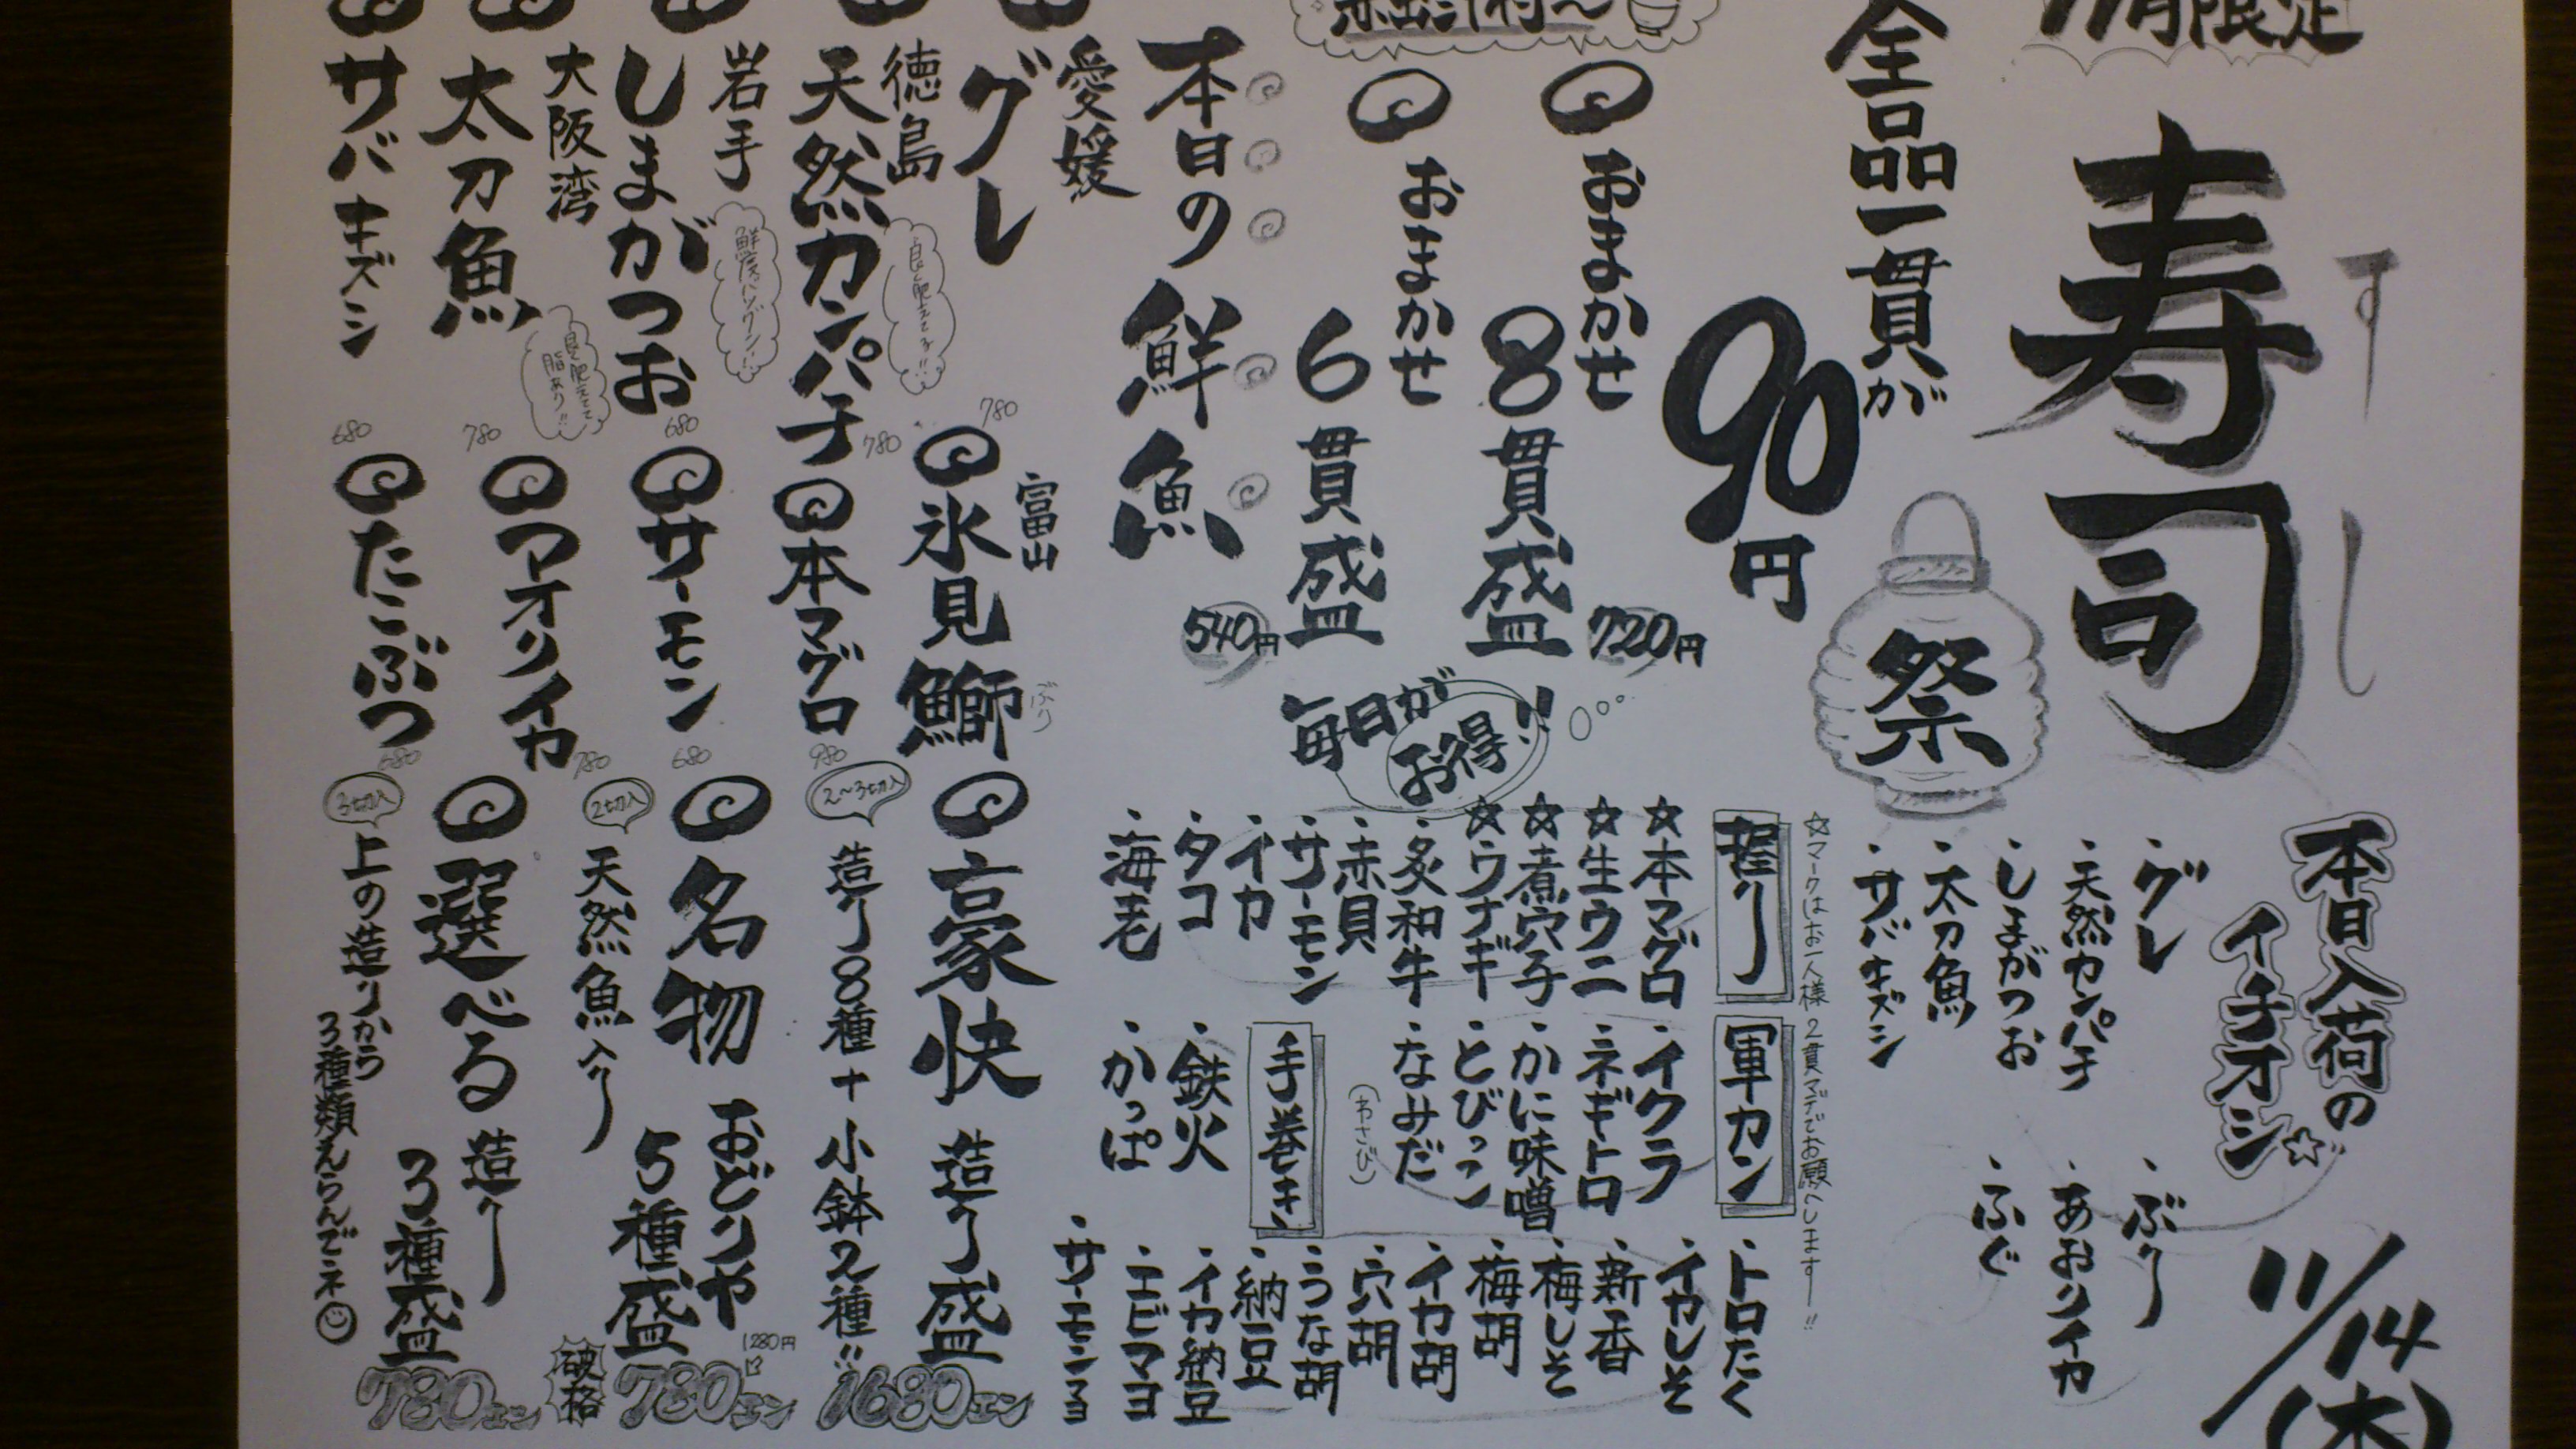 11月限定
寿司
すし
祭
全品一貫が
90円
本日入荷の
イチオシ☆
・グレ
・天然カンパチ
・しまがつお
・太刀魚
・サバキズシ
・ぶり
・あおりイカ
・ふぐ
11/14(木)
おまかせ
8貫盛
720円
おまかせ
6貫盛
540円
毎日が
お得!!
☆マークはお一人様2貫マデでお願いします!!
握り
☆本マグロ
☆生ウニ
☆煮穴子
☆ウナギ
・炙和牛
・赤貝
・サーモン
・イカ
・タコ
・海老
軍カン
・イクラ
・ネギトロ
・かに味噌
・とびっこ
・なみだ
(わさび)
手巻き
・鉄火
・かっぱ
・トロたく
・イカしそ
・新香
・梅しそ
・梅胡
・イカ胡
・穴胡
・うな胡
・納豆
・イカ納豆
・エビマヨ
・サーモンマヨ
本日の
鮮魚
愛媛
グレ
780
徳島
天然カンパチ
780
岩手
しまがつお
鮮度バツグン!!
680
大阪湾
太刀魚
780
サバキズシ
680
・富山
氷見鰤
ぶり
本マグロ
980
サーモン
680
アオリイカ
780
たこぶつ
680
豪快
造り盛
2〜3切入
造り8種+小鉢2種!!
1680エン
名物
おどりや
5種盛
2切入
天然魚入り
1280円
破格
780エン
選べる
造り
3種盛
3切入
上の造りから
3種類えらんでネ
780エン